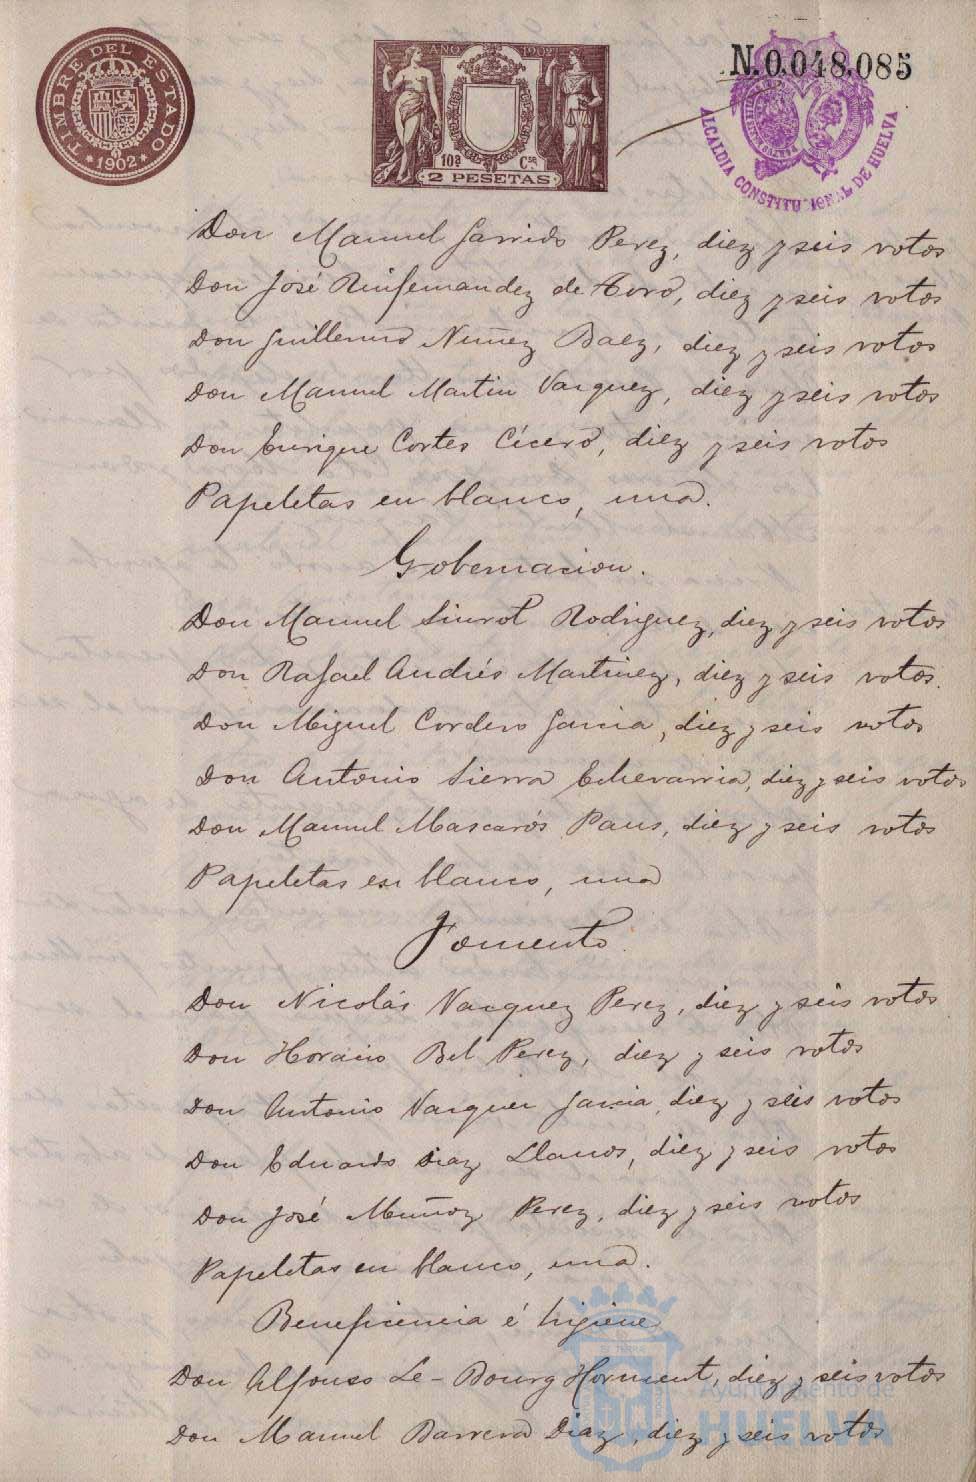 TIMBRE DEL ESTADO
*1902*
AÑO 1902
10ª Cse
2 PESETAS
N.0,048,085
ALCALDIA CONSTITUCIONAL DE HUELVA
Don Manuel Garrido Perez, diez y seis votos
Don José Ruifernandez de Toro, diez y seis votos
Don Guillermo Nuñez Baez, diez y seis votos
Don Manuel Martin Vazquez, diez y seis votos
Don Enrique Cortes Cícero, diez y seis votos
Papeletas en blanco, una.
Gobernacion.
Don Manuel Siurot Rodriguez, diez y seis votos
Don Rafael Andrés Martinez, diez y seis votos.
Don Miguel Cordero Garcia, diez y seis votos
Don Antonio Sierra Echevarria, diez y seis votos
Don Manuel Mascarós Paus, diez y seis votos
Papeletas en blanco, una
Fomento.
Don Nicolás Vazquez Perez, diez y seis votos
Don Horacio Bel Perez, diez y seis votos
Don Antonio Vazquez Garcia, diez y seis votos
Don Eduardo Diaz Llanos, diez y seis votos
Don José Muñoz Perez, diez y seis votos
Papeletas en blanco, una.
Beneficencia é higiene
Don Alfonso Le-Bourg Horment, diez y seis votos
Don Manuel Barrera Diaz, diez y seis votos
Ayuntamiento de
HUELVA